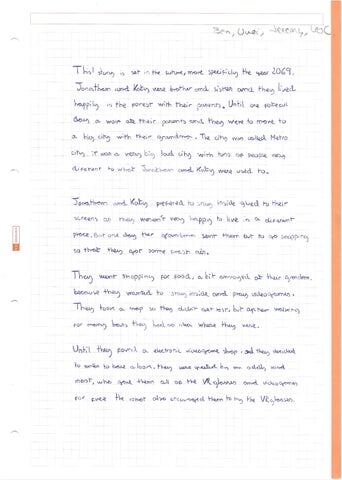 Ben, Unai, Jeremy,
This story is set in the future, more specificly the year 2069.
Jonathan and Katy were brother and sister and they lived
happily in the forest with their parents. Until one fateful
day a wolf ate their parents and they were to move to
a big city with their grandmom. The city was called Metro
city, it was a very big loud city with tons of people very
different to what Jonathan and Katy were used to.
Jonathan and Katy prefered to stay inside glued to their
screens as they weren't very happy to live in a different
place. But one day ther grandmom sent them out to go shopping
so that they got some fresh air.
They went shopping for food, a bit annoyed at their grandma,
because they wanted to stay inside and play videogames.
They took a map so they didn't get lost, but after walking
for many hours they had no idea where they were.
Until they found a electronic videogame shop, and they decided
to enter to have a look. They were greeted by an oddly kind
man, who gave them all of the VR glasses and videogames
for free the also encouraged them to try the VR glasses.